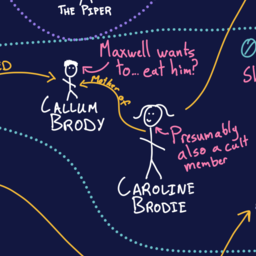 THE PIPER
Maxwell wants
to... eat him?
ED
Mother of
CALLUM
BRODY
Presumably
also a cult
member
CAROLINE
BRODIE